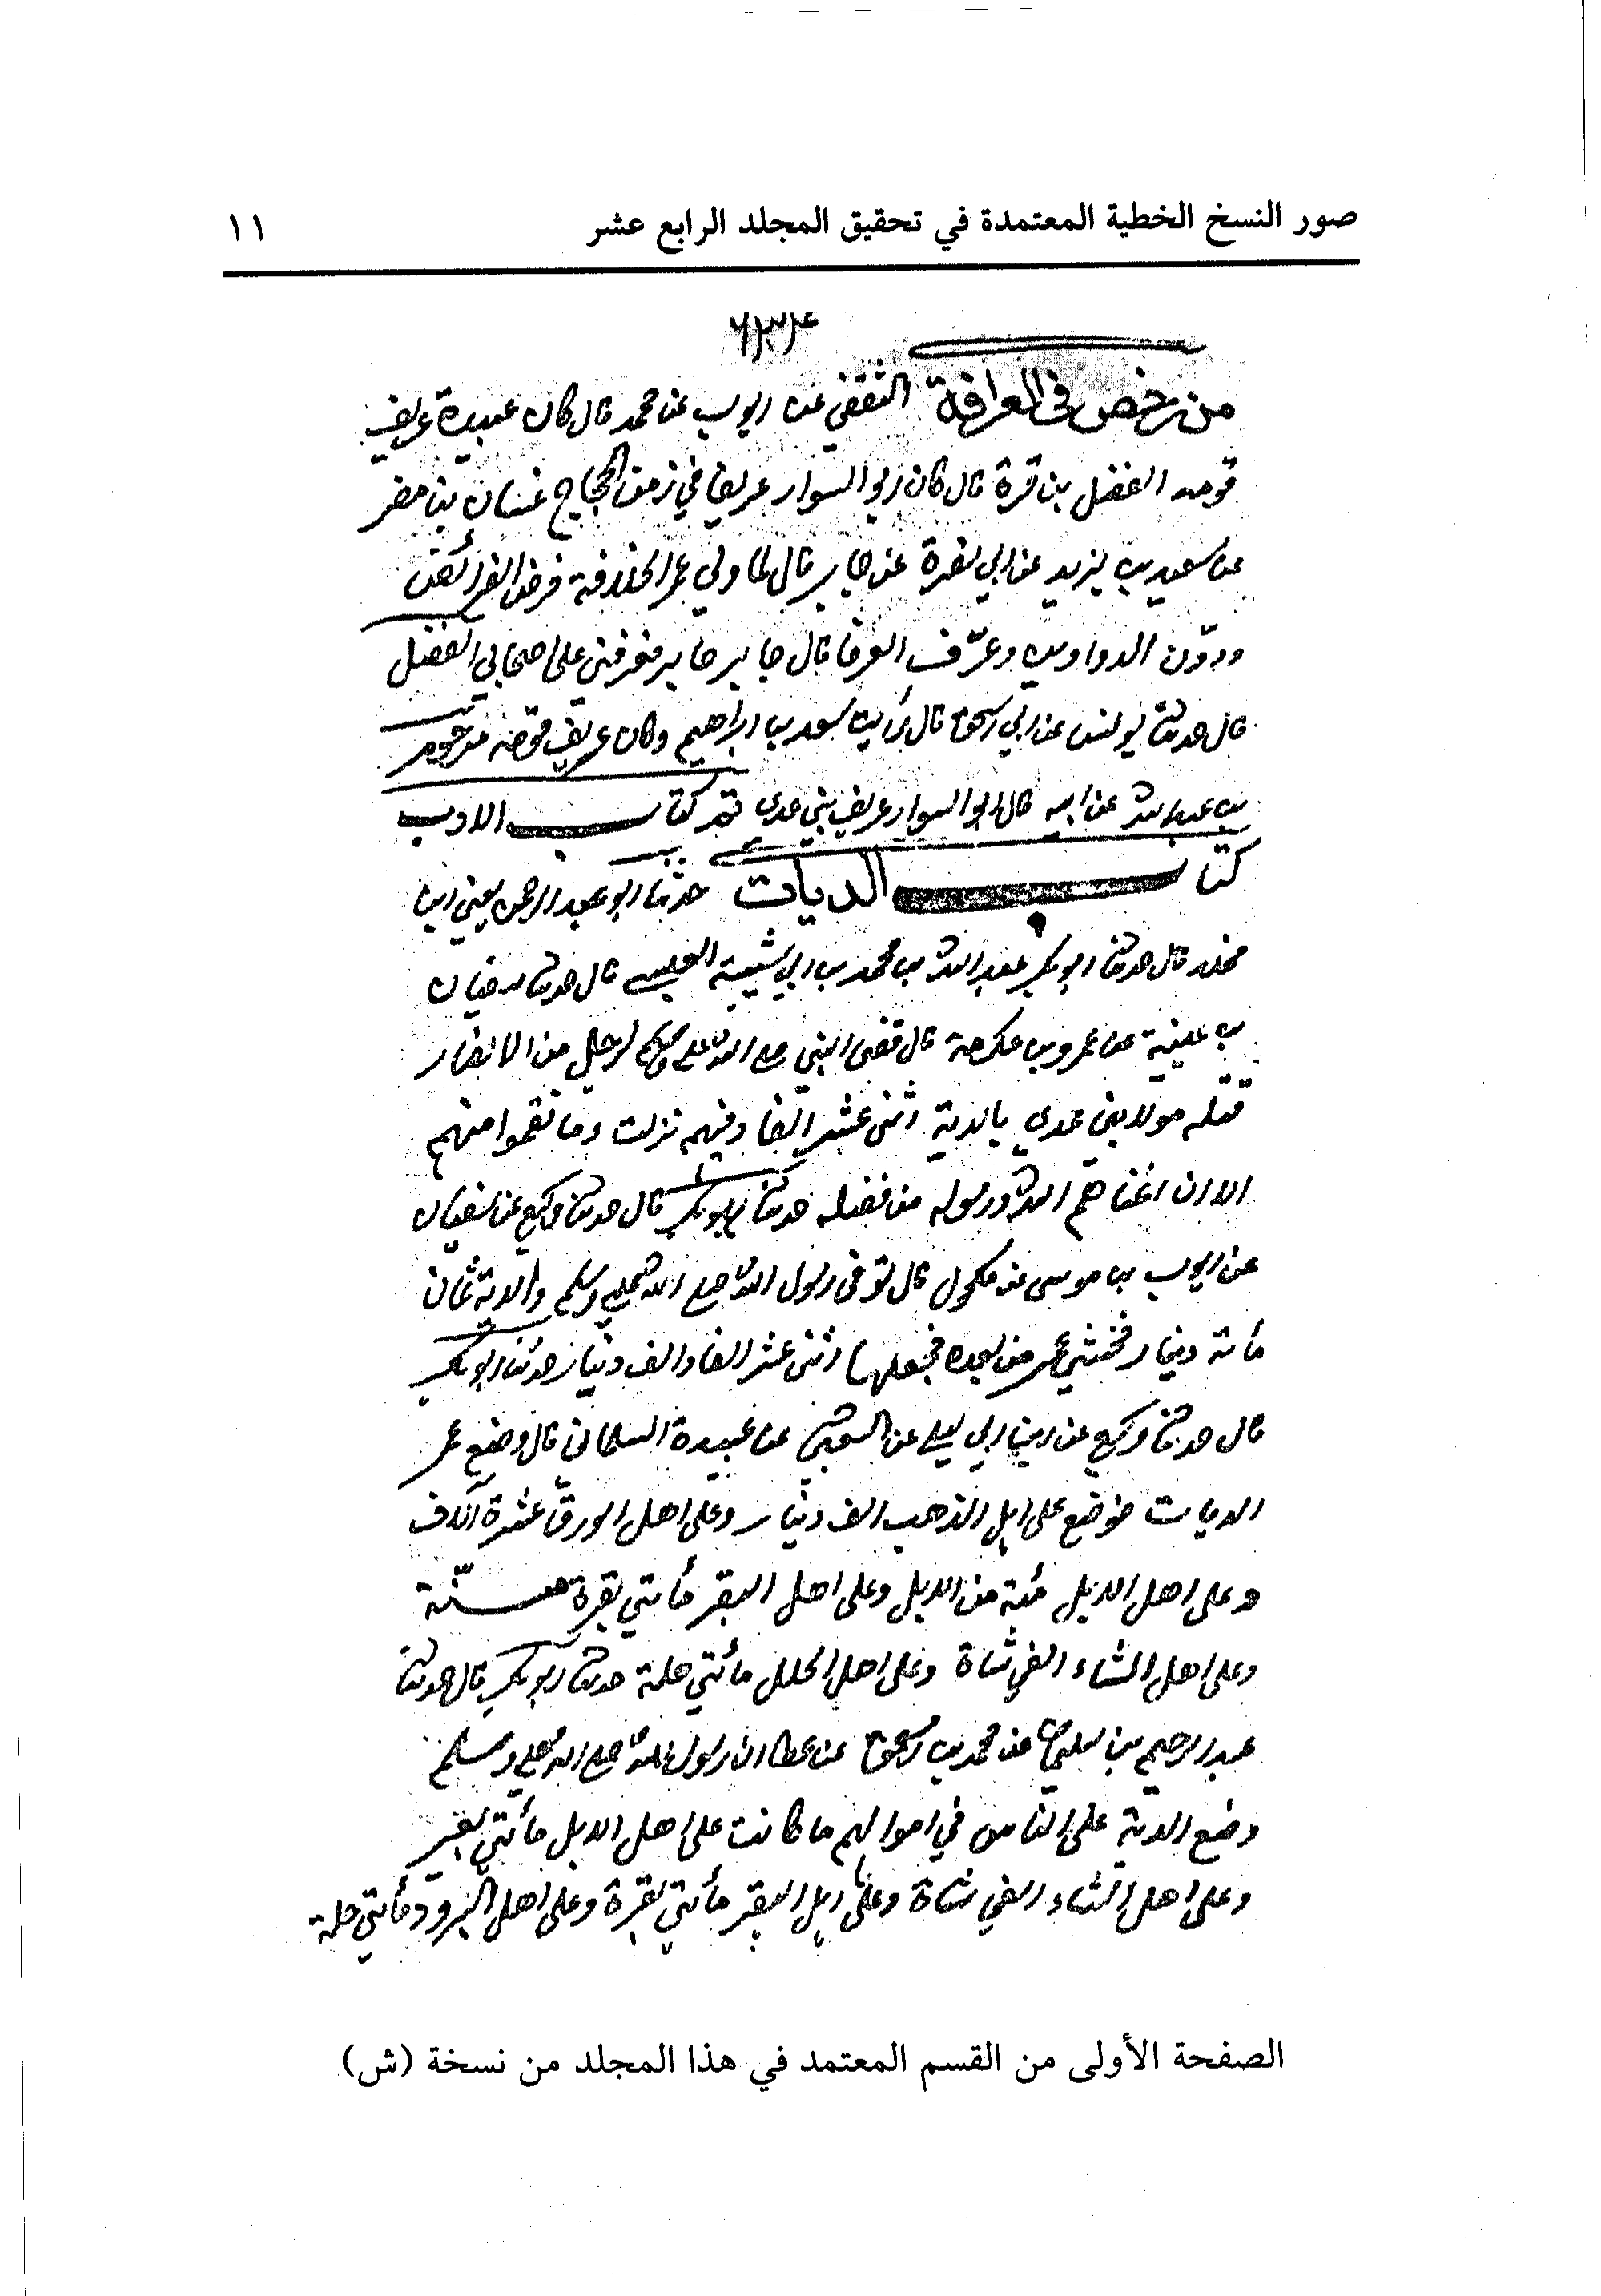 صور النسخ الخطية المعتمدة في تحقيق المجلد الرابع عشر ١١
من رخص في العرافة الثقفي عن ايوب عن محمد قال كان عبيدة عريف
قومه الفضل بن قرة قال كان ابو السوار عريفا في زمن الحجاج غسان بن مضر
عن سعيد بن يزيد عن ابي نضرة عن جابر قال لما ولي عمر الخلافة فرض الفرائض
ودوّن الدواوين وعرّف العرفا قال جابر جابر فعرفني على اصحابي الفضل
قال حدثنا يونس عن ابي اسحق قال رأيت سعد بن ابراهيم وكان عريف قومه مرحوم
بن عبد عن ابيه قال ابو السوار عريف بني عدي كتاب الادب
كتاب الديات حدثنا ابو عبد الرحمن يعني ابن
مخلد قال حدثنا ابو بكر عبد الله بن محمد بن ابي شيبة العبسي قال حدثنا سفيان
بن عيينة عن عمرو بن عكرمة قال قضى النبي صلى الله عليه وسلم لرجل من الانصار
قتله مولا بني عدي بالدية اثنى عشر الفا وفيهم نزلت وما نقموا منهم
الا ان اغناهم الله ورسوله من فضله حدثنا ابو بكر قال حدثنا وكيع عن سفيان
عن ايوب بن موسى عن مكحول قال توفى رسول الله صلى الله عليه وسلم والدية ثمان
مائة دينار فخشي عمر من بعده فجعلها اثنى عشر الفا والف دينار حدثنا ابو بكر
قال حدثنا وكيع عن ابن ابي ليلى عن الشعبي عن عبيدة السلماني قال وضع عمر
الديات فوضع على اهل الذهب الف دينار وعلى اهل الورق عشرة آلاف
وعلى اهل الابل مئة من الابل وعلى اهل البقر مأتي بقرة مسنّة
وعلى اهل الشاء الفي شاة وعلى اهل الحلل مائتي حلة حدثنا ابو بكر قال حدثنا
عبد الرحيم بن سليمان عن محمد بن اسحق عن عطا ان رسول الله صلى الله عليه وسلم
وضع الدية على الناس في اموالهم ما كانت على اهل الابل مأتي بعير
وعلى اهل الشاء الفي شاة وعلى اهل البقر مأتي بقرة وعلى اهل البرود مأتي حلة
الصفحة الأولى من القسم المعتمد في هذا المجلد من نسخة (ش)